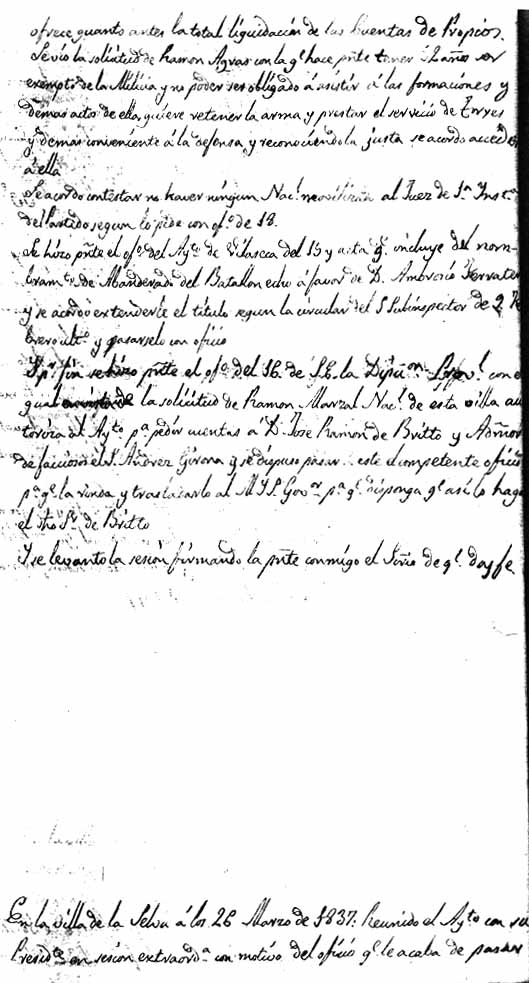 ofrece quanto antes la total liquidacion de las Cuentas de Propios.
Se vio la solicitud de Ramon Agras con la q.e hace pnte tener años ser
exempto de la Milicia y no poder ser obligado á asistir á las formaciones y
demas actos de ella, quiere retener la arma, y prestar el servicio de Torres
y demas conveniente á la defensa, y reconociendola justa se acordo acceder
á ella
Se acordo contestar no haver ningun Nac.l al Juez de 1.a Inst.a
del Partido segun lo pide con of.o de 18.
Se hizo pnte el of.o del Ay.to de Vilaseca del 15 y acta q. incluye del nom-
bram.to de Abanderado del Batallon echo á favor de D. Ambrosio
y se acordo extenderle el titulo segun la circular del S. Subinspector de 2
y pasarselo con oficio
Y p.r fin se hizo pnte el of.o del 16 de S.E. la Dipu.on Prov.l con el
qual la solicitud de Ramon Marzal Nac.l de esta villa au
toriza al Ay.to p.a pedir cuentas a D. Jose Ramon de Britto y Admor
de facciosos el S. Andrez Girona y se dispuso pasar este competente oficio
p.a q.e la rinda y trasladarlo al M.I.S. Gov.or p.a q.e disponga q.e asi lo haga
el dho S.r de Britto
Y se levanto la sesion firmando la pnte conmigo el Srio de q.e doy fe
En la villa de la Selva á los 26 Marzo de 1837. Reunido el Ay.to con su
Presid.te en sesion extraord.a con motivo del oficio q.e le acaba de pasar